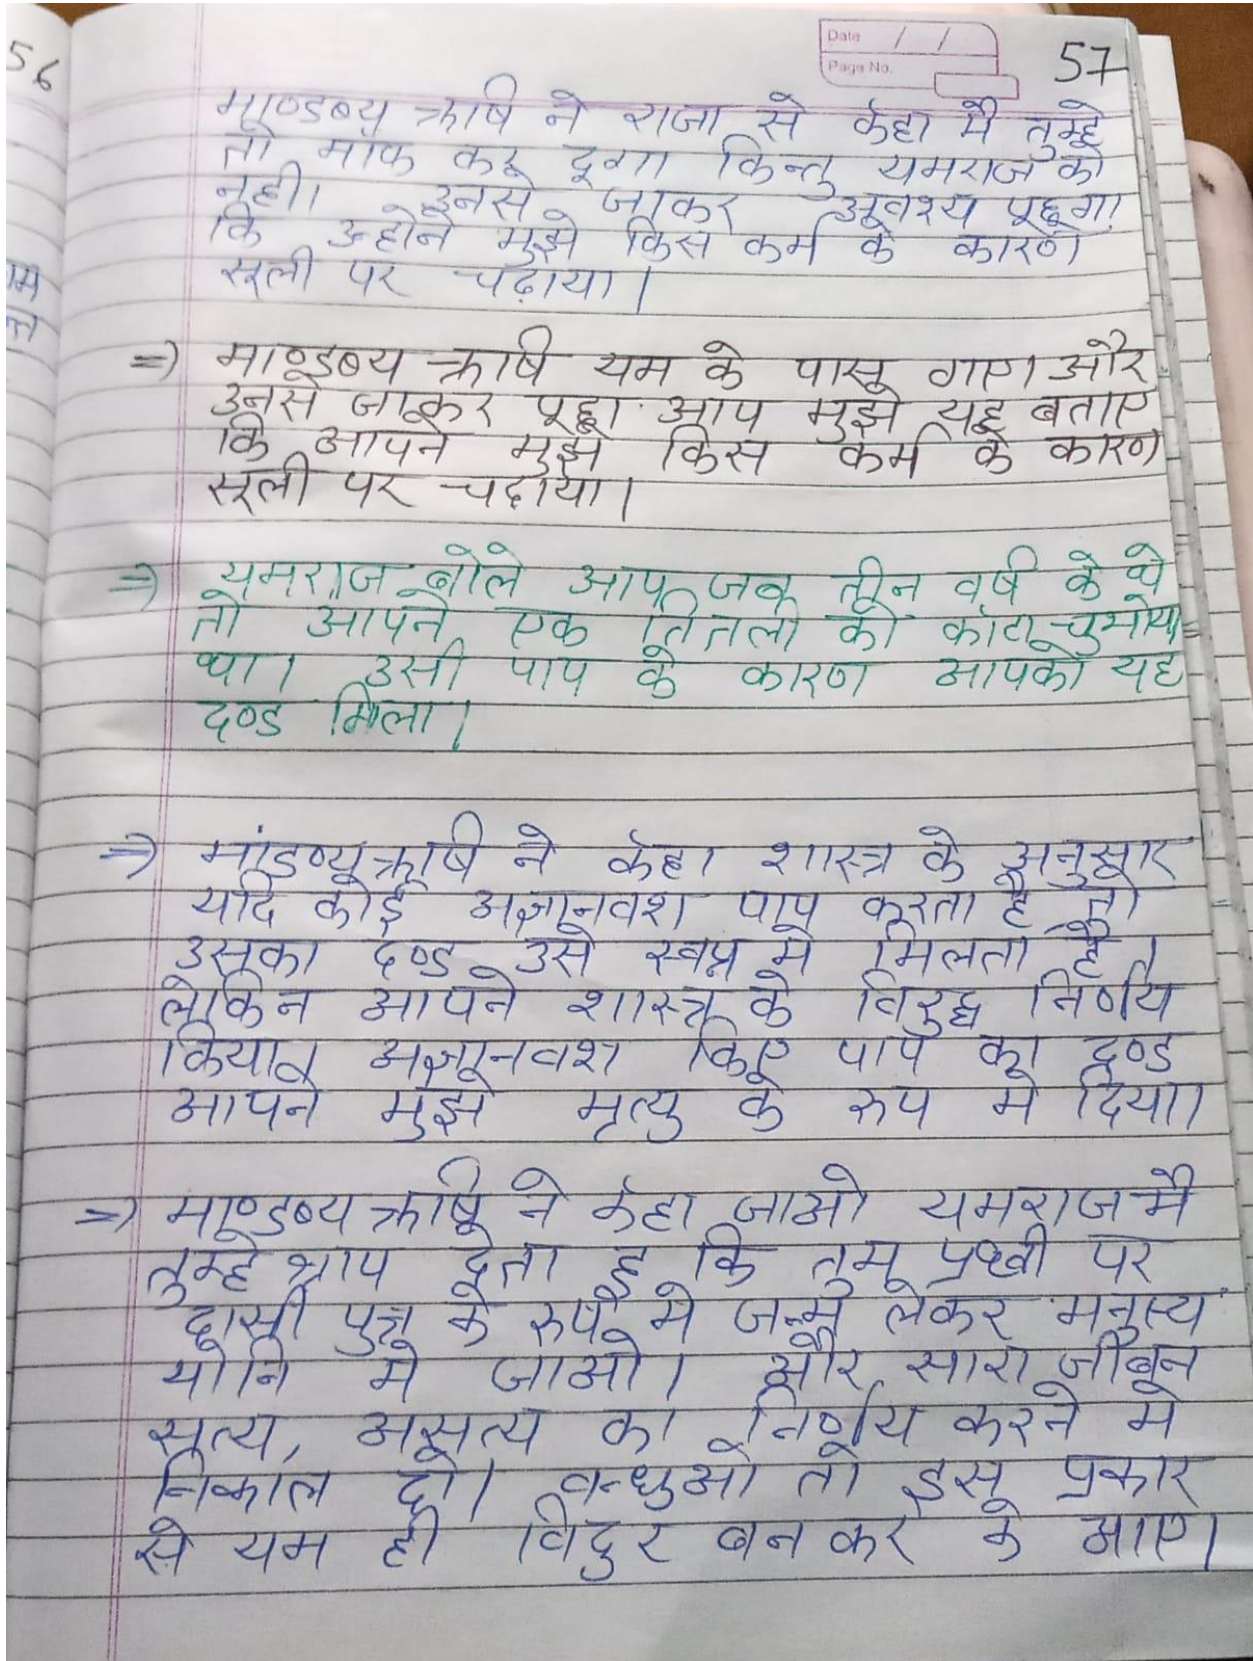 56
Date / /
Page No.
57
माण्डब्य ऋषि ने राजा से कहा मै तुम्हे
तो माफ कर दूगा किन्तु यमराज को
नही। उनसे जाकर अवश्य पूछूगा
कि उन्होने मुझे किस कर्म के कारण
सूली पर चढ़ाया।
=> माण्डब्य ऋषि यम के पास गए। और
उनसे जाकर पूछा आप मुझे यह बताए
कि आपने मुझे किस कर्म के कारण
सूली पर चढाया।
=> यमराज बोले आप जब तीन वर्ष के थे
तो आपने एक तितली को काँटा चुभोया
था। उसी पाप के कारण आपको यह
दण्ड मिला।
=> मांडण्य ऋषि ने कहा शास्त्र के अनुसार
यदि कोई अज्ञानवश पाप करता है तो
उसका दण्ड उसे स्वप्न मे मिलता है।
लेकिन आपने शास्त्र के विरुद्ध निर्णय
किया। अज्ञानवश किए पाप का दण्ड
आपने मुझे मृत्यु के रुप मे दिया।
=> माण्डब्य ऋषि ने कहा जाओ यमराज मै
तुम्हे श्राप देता हू कि तुम प्रथ्वी पर
दासी पुत्र के रुप मे जन्म लेकर मनुस्य
योनि मे जाओ। और सारा जीबन
सत्य, असत्य का निर्णय करने मे
निकाल दो। वन्धुओ तो इस प्रकार
से यम ही विदुर बन कर के आए।